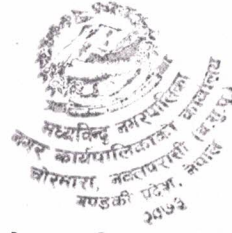 मध्यविन्दु नगरपालिका
नगर कार्यपालिकाको कार्यालय
चोरमारा, नवलपरासी (ब.सु.पू.)
गण्डकी प्रदेश, नेपाल
२०७३